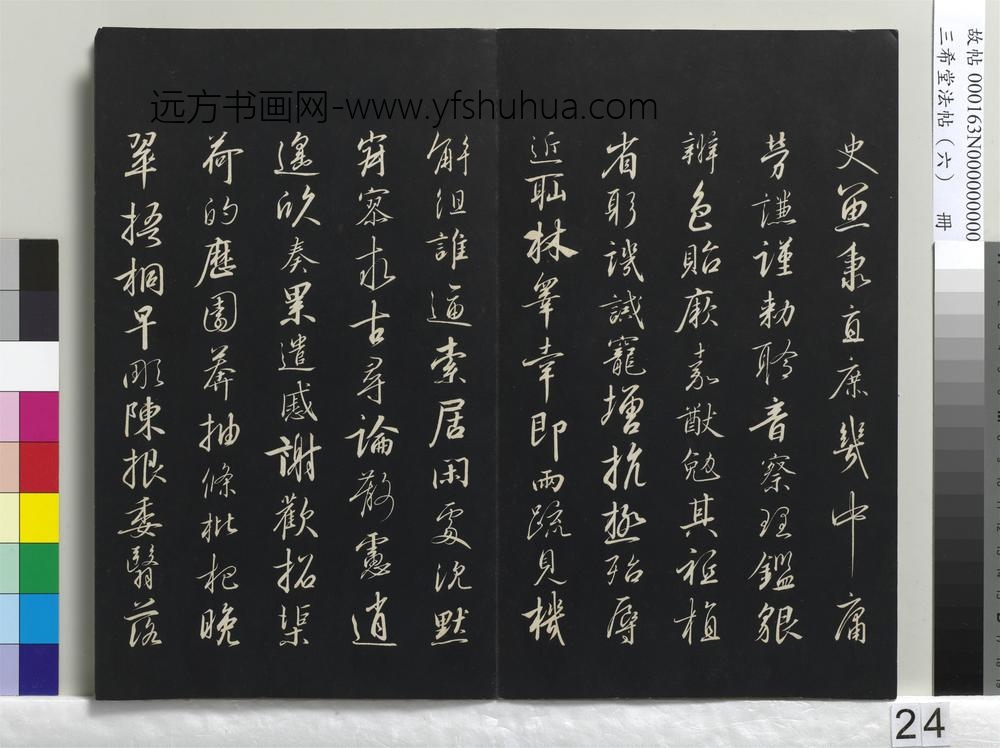 史魚秉直庶幾中庸
勞謙謹勅聆音察理鑑貌
辯色貽厥嘉猷勉其祗植
省躬譏誡寵增抗極殆辱
近恥林皋幸即兩疏見機
解組誰逼索居閑處沈默
寂寥求古尋論散慮逍
遙欣奏累遣慼謝歡招渠
荷的歷園莽抽條枇杷晚
翠梧桐早彫陳根委翳落
远方书画网-www.yfshuhua.com
故帖 000163N000000000
三希堂法帖(六) 冊
24